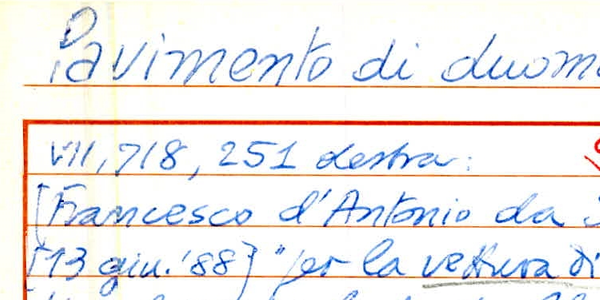 Pavimento di duom
VII, 718, 251 destra:
[Francesco d'Antonio da
[13 giu. '88] "per la vettura di